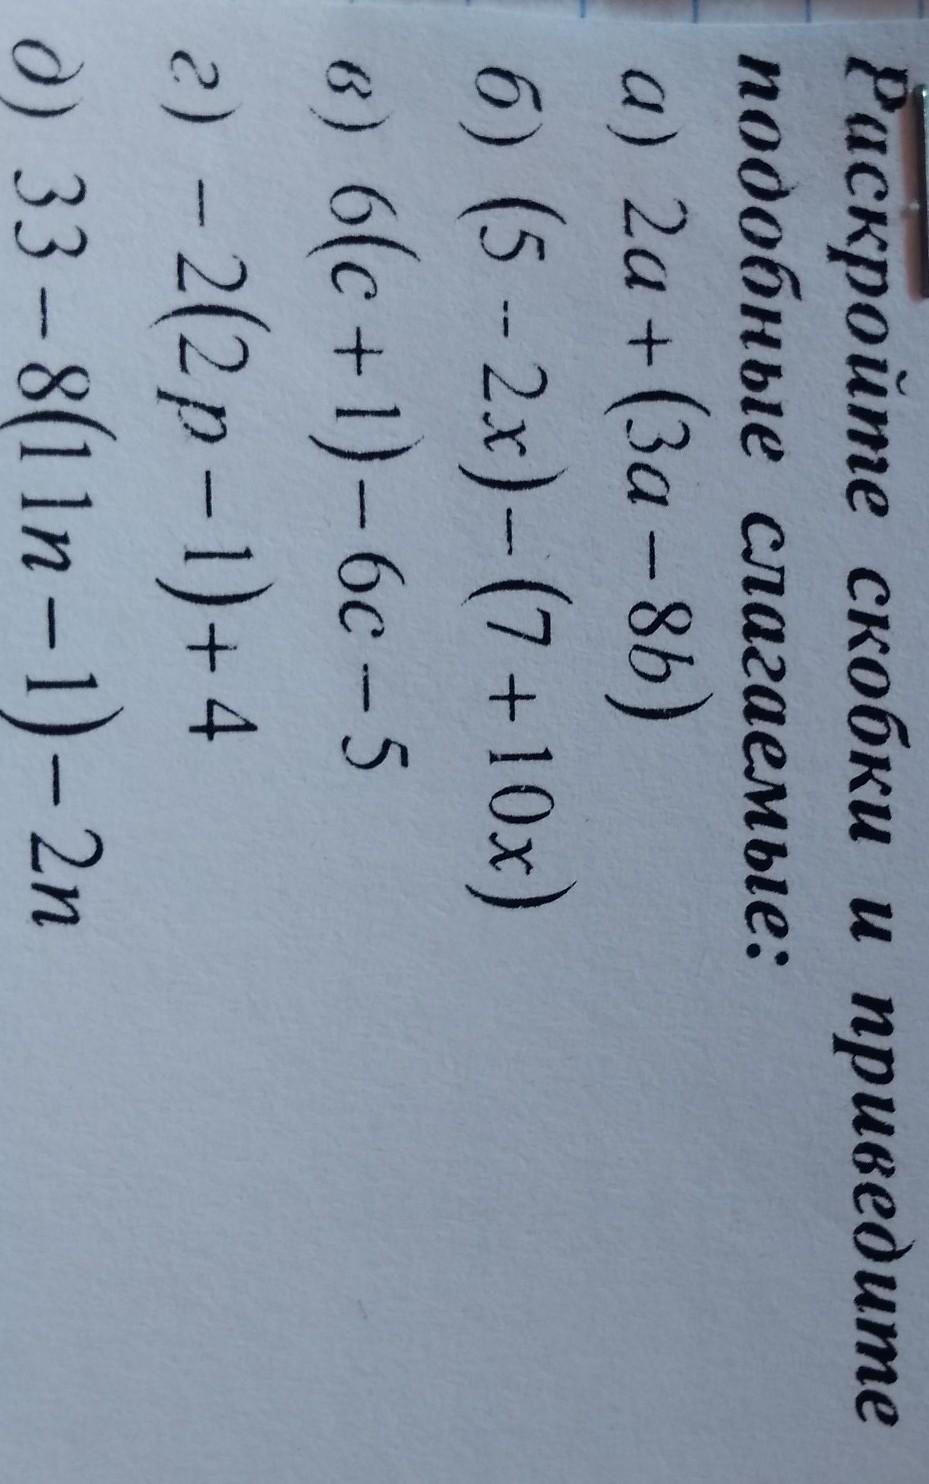 Раскройте скобки и приведите
подобные слагаемые:
а) 2a + (3a − 8b)
б) (5 − 2x) − (7 + 10x)
в) 6(c + 1) − 6c − 5
г) − 2(2p − 1) + 4
д) 33 − 8(11n − 1) − 2n